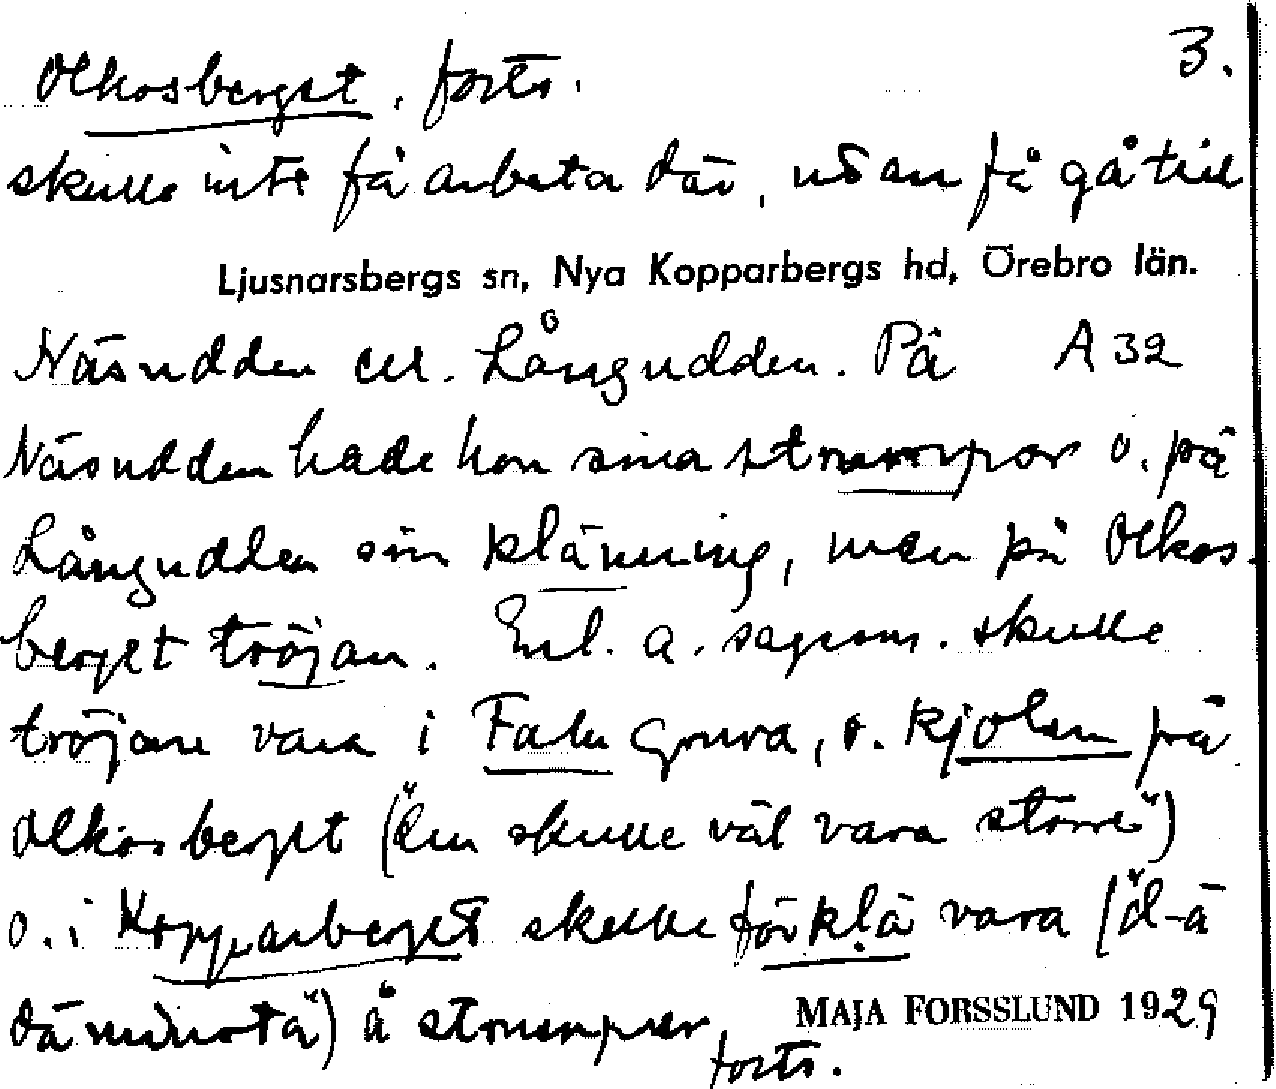 Olkosberget, forts. 3.
skulle inte få arbeta där, utan få gå till
Ljusnarsbergs sn, Nya Kopparbergs hd, Örebro län.
Näsudden ell. Långudden. På A 32
Näsudden hade hon sina strumpor o. på
Långudden sin klänning, men på Olkos-
berget tröjan. Enl. a. sagesm. skulle
tröjan vara i Falu gruva, o. kjolen på
Olkosberget ("den skulle väl vara större")
o. i Kopparberget skulle förklä vara ("d-ä
dä minsta") å strumper,
MAJA FORSSLUND 1929
forts.